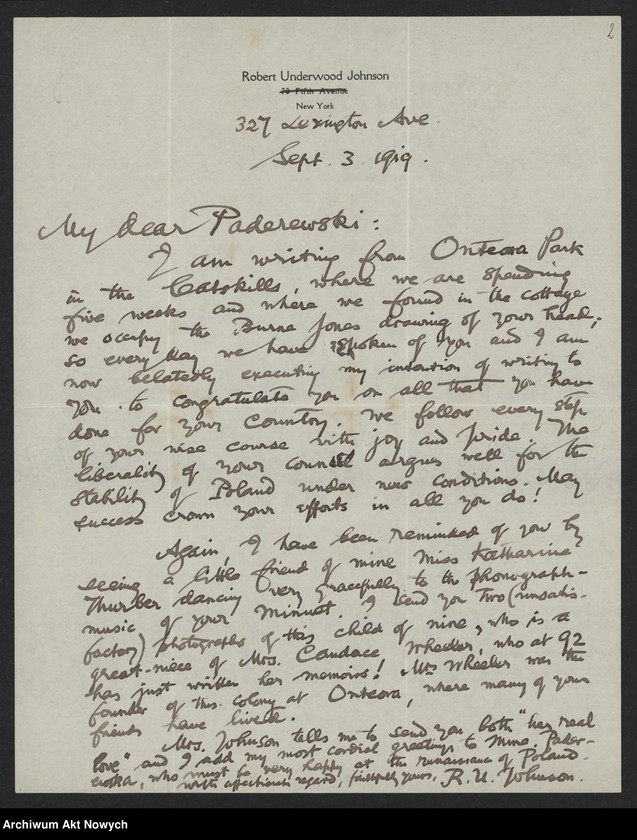 2
Robert Underwood Johnson
70 Fifth Avenue
New York
327 Lexington Ave.
Sept. 3 1919.
My dear Paderewski:
I am writing from Onteora Park
in the Catskills, where we are spending
five weeks and where we found in the cottage
we occupy the Burne Jones drawing of your head;
so every day we have spoken of you and I am
now belatedly executing my intention of writing to
you to congratulate you on all that you have
done for your Country. We follow every step
of your wise course with joy and pride. The
liberality of your counsel augurs well for the
stability of Poland under new conditions. May
success crown your efforts in all you do!
Again, I have been reminded of you by
seeing a little friend of mine Miss Katharine
Thurber dancing very gracefully to the phonograph-
music of your Minuet. I send you two (unsatis-
factory) photographs of this child of nine, who is a
great-niece of Mrs. Candace Wheeler, who at 92
has just written her memoirs! Mrs Wheeler was the
founder of this colony at Onteora, where many of your
friends have lived.
Mrs. Johnson tells me to send you both "her real
love" and I add my most cordial greetings to Mme. Pader-
ewska, who must be very happy at the renaissance of Poland.
With affectionate regard, faithfully yours, R. U. Johnson.
Archiwum Akt Nowych